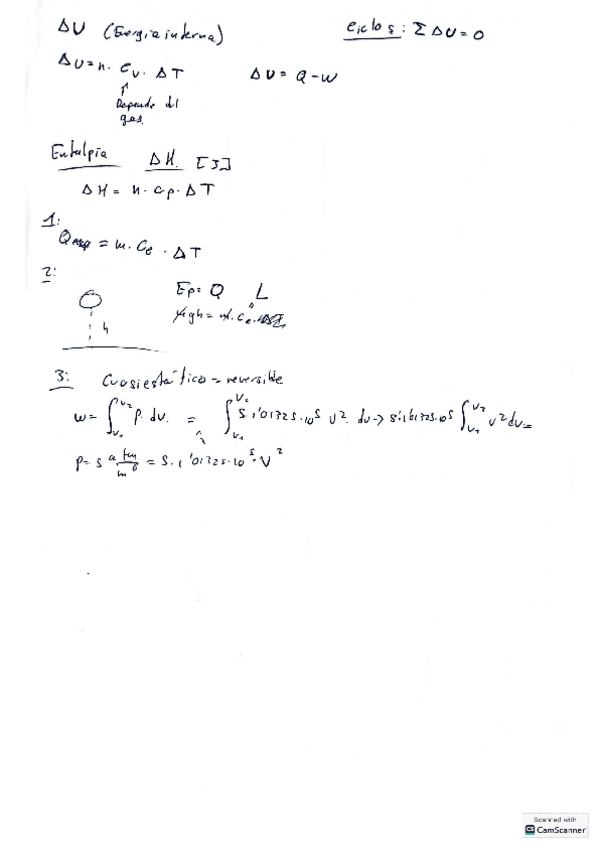 ΔU (Energía interna)
ciclos: Σ ΔU = 0
ΔU = n. Cv. ΔT
ΔU = Q - W
↑
Depende del
gas.
Entalpía ΔH. [J]
ΔH = n. cp. ΔT
1:
= m. Ce . ΔT
2:
Ep = Q
h
mgh = m. Ce.
3: Cuasiestático = reversible
W = ∫V₁^V₂ P. dv. = ∫V₁^V₂ 5. 1'01325.10⁵ V². dv → 5.1'01325.10⁵ ∫V₁^V₂ V² dv =
P = 5 atm/m⁶ = 5. 1'01325.10⁵. V²
Scanned with
CamScanner